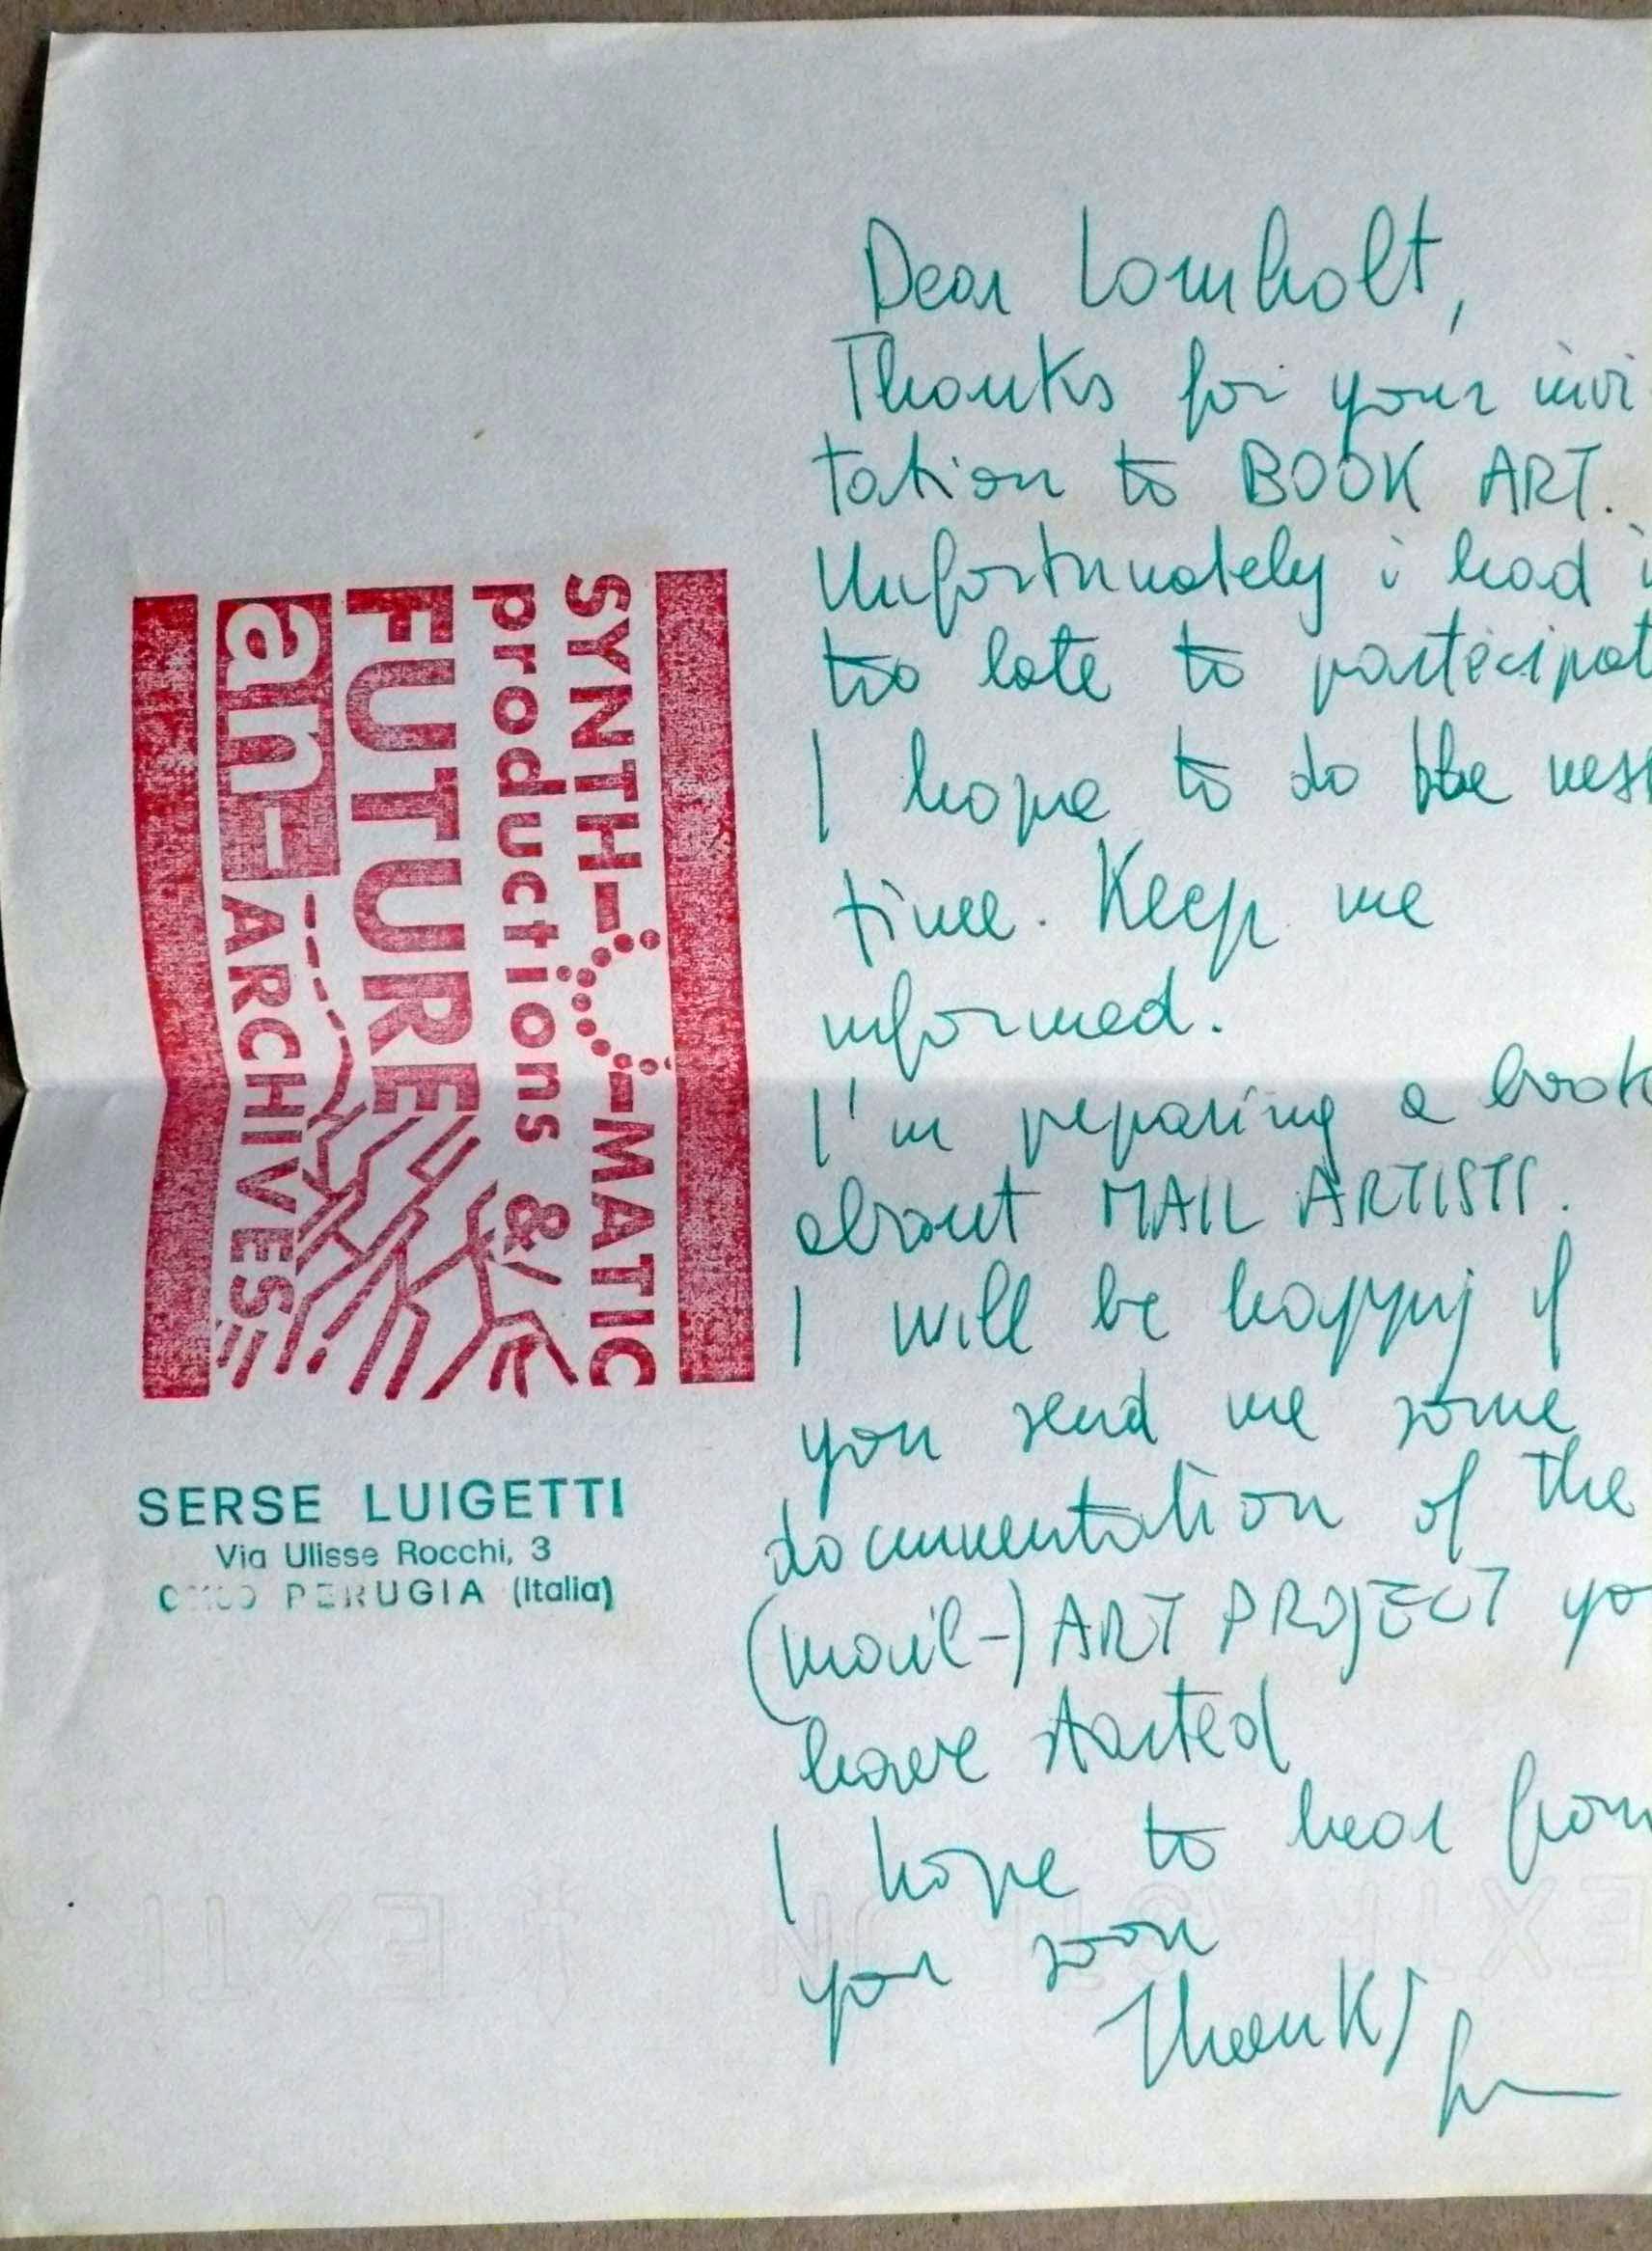 SYNTH-
-MATIC
productions &
FUTURE
an-ARCHIVES
SERSE LUIGETTI
Via Ulisse Rocchi, 3
PERUGIA (Italia)
Dear Lomholt,
Thanks for your invi
tation to BOOK ART.
Unfortunately i had
too late to partecipat
I hope to do the
time. Keep me
informed.
I'm preparing a book
about MAIL ARTISTS.
I will be happy if
you send me some
documentation of the
(mail-) ART PROJECT yo
have started
I hope to hear from
you soon
Thanks